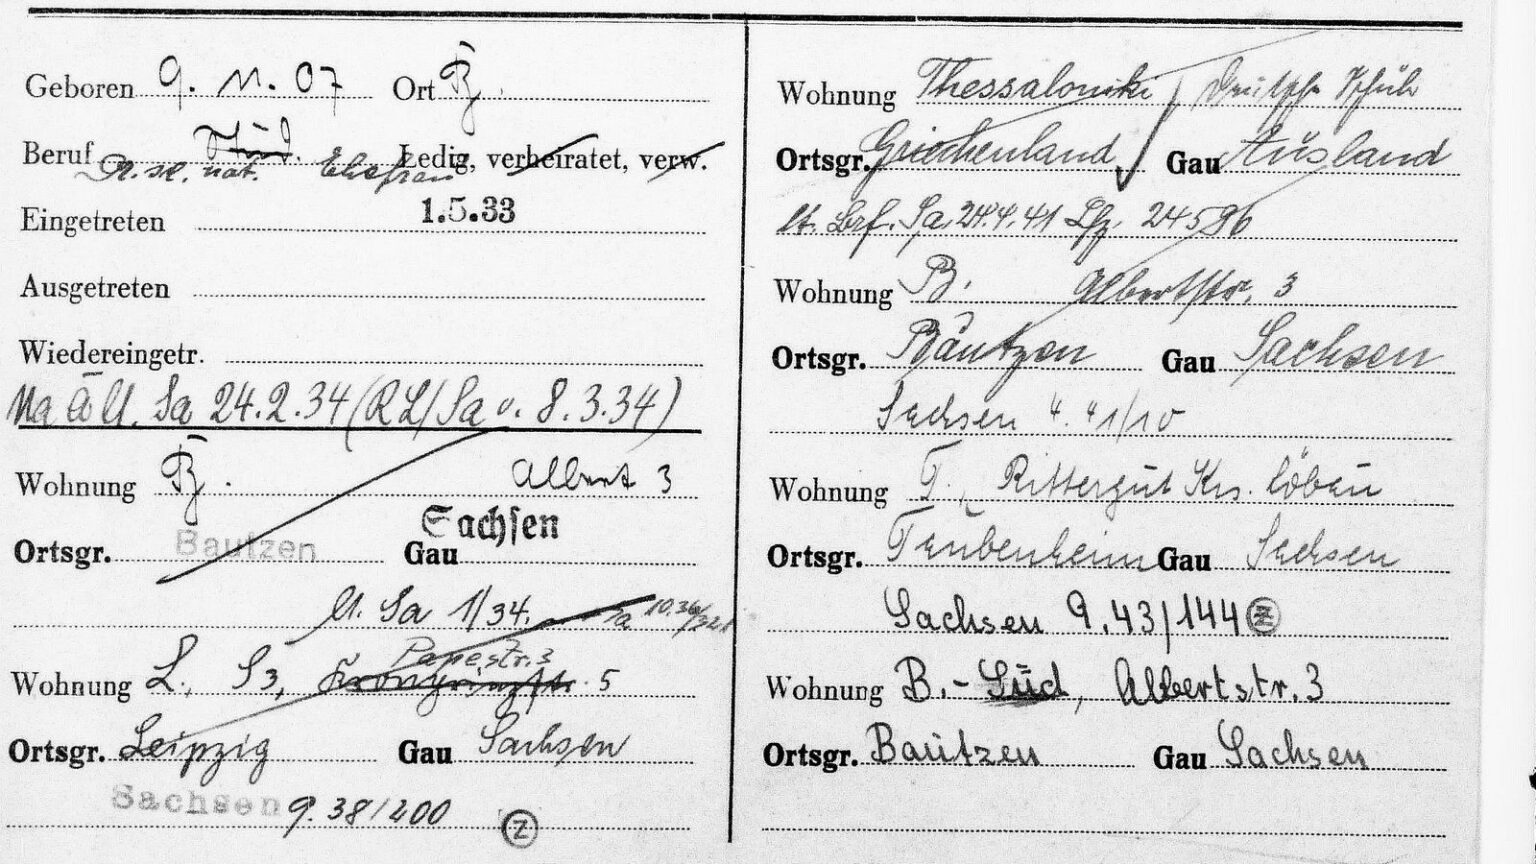 Geboren 9. 11. 07 Ort Bz.
Beruf Stud. Ledig, verheiratet, verw.
R. sc. nat. Ehefrau
Eingetreten 1.5.33
Ausgetreten
Wiedereingetr.
24.2.34 (RL/Sa v. 8.3.34)
Wohnung Bz. Albert 3
Ortsgr. Bautzen Gau Sachsen
Sa 1/34. 10.36
Papestr. 3
Wohnung L. S3, 5
Ortsgr. Leipzig Gau Sachsen
Sachsen 9.38/200 Z
Wohnung Thessaloniki
Ortsgr. Griechenland Gau Ausland
lt. Brf. Sa. 24.4.41 Lfz. 24596
Wohnung B. Albertstr. 3
Ortsgr. Bautzen Gau Sachsen
Sachsen 4.41/10
Wohnung T., Rittergut Krs. Löbau
Ortsgr. Taubenheim Gau Sachsen
Sachsen 9.43/144 Z
Wohnung B.-Süd, Albertstr. 3
Ortsgr. Bautzen Gau Sachsen